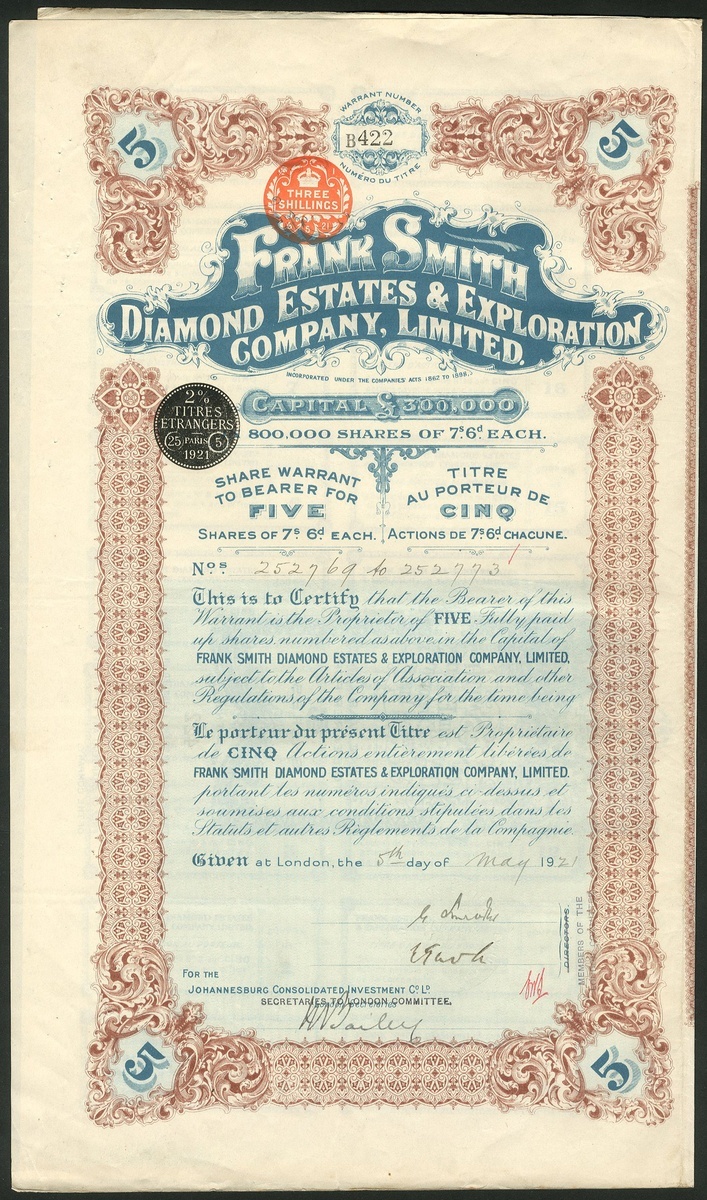 WARRANT NUMBER
B422
NUMÉRO DU TITRE
5
5
THREE
SHILLINGS
FRANK SMITH
DIAMOND ESTATES & EXPLORATION
COMPANY, LIMITED.
INCORPORATED UNDER THE COMPANIES' ACTS 1862 TO 1898.
CAPITAL £300,000
800,000 SHARES OF 7s. 6d EACH.
2%
TITRES
ETRANGERS
25 PARIS 5
1921
SHARE WARRANT
TO BEARER FOR
FIVE
SHARES OF 7s 6d EACH.
TITRE
AU PORTEUR DE
CINQ
ACTIONS DE 7s 6d CHACUNE.
Nos. 252769 to 252773
This is to Certify that the Bearer of this
Warrant is the Proprietor of FIVE Fully paid
up shares numbered as above in the Capital of
FRANK SMITH DIAMOND ESTATES & EXPLORATION COMPANY, LIMITED,
subject to the Articles of Association and other
Regulations of the Company for the time being
Le porteur du présent Titre est Propriétaire
de CINQ Actions entièrement libérées de
FRANK SMITH DIAMOND ESTATES & EXPLORATION COMPANY, LIMITED.
portant les numéros indiqués ci-dessus et
soumises aux conditions stipulées dans les
Statuts et autres Règlements de la Compagnie.
Given at London, the 5th day of May 1921
DIRECTORS.
MEMBERS OF THE
FOR THE
JOHANNESBURG CONSOLIDATED INVESTMENT CO. LD.
SECRETARIES TO LONDON COMMITTEE.
5
5